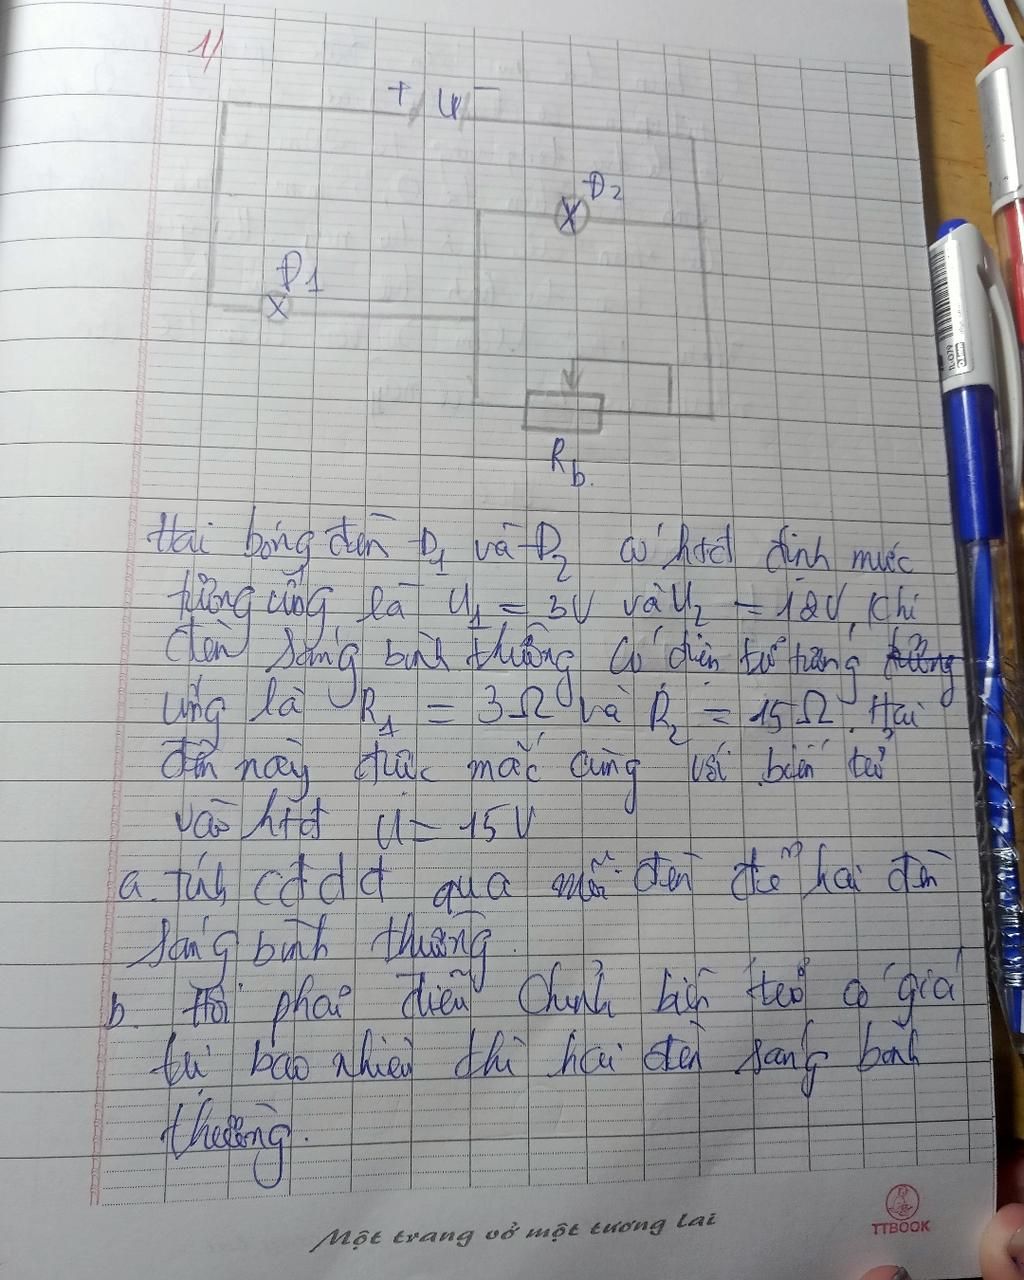 1/
+ U -
Đ2
Đ1
Rb.
Hai bóng đèn Đ1 và Đ2 có hđt định mức
tương ứng là U1 = 3V và U2 = 12V. Khi
đèn sáng bình thường có điện trở tương
ứng là R1 = 3Ω và R2 = 15Ω. Hai
đèn này được mắc cùng với biến trở
vào hđt U = 15V
a. Tính cđdđ qua mỗi đèn để hai đèn
sáng bình thường.
b. Hỏi phải điều chỉnh biến trở có giá
trị bao nhiêu thì hai đèn sáng bình
thường.
Một trang vở một tương lai
TTBOOK